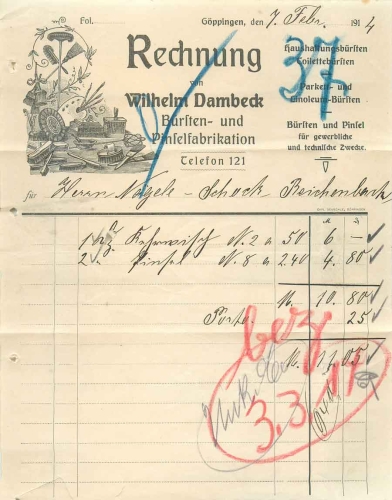 Fol.
Göppingen, den 7. Febr. 1914
37
Rechnung
von
Wilhelm Dambeck
Bürsten- und
Pinselfabrikation
Telefon 121
Haushaltungsbürsten
Toilettebürsten
Parkett- und
Linoleum-Bürsten
Bürsten und Pinsel
für gewerbliche
und technische Zwecke.
für Herrn Nägele-Schock Reichenbach
1 Dz. Kehrwisch N. 2 a 50 6 —
2 " Pinsel N. 8 a 2.40 4. 80
M. 10. 80
Porto 25
M. 11.05
bez
3.3.14